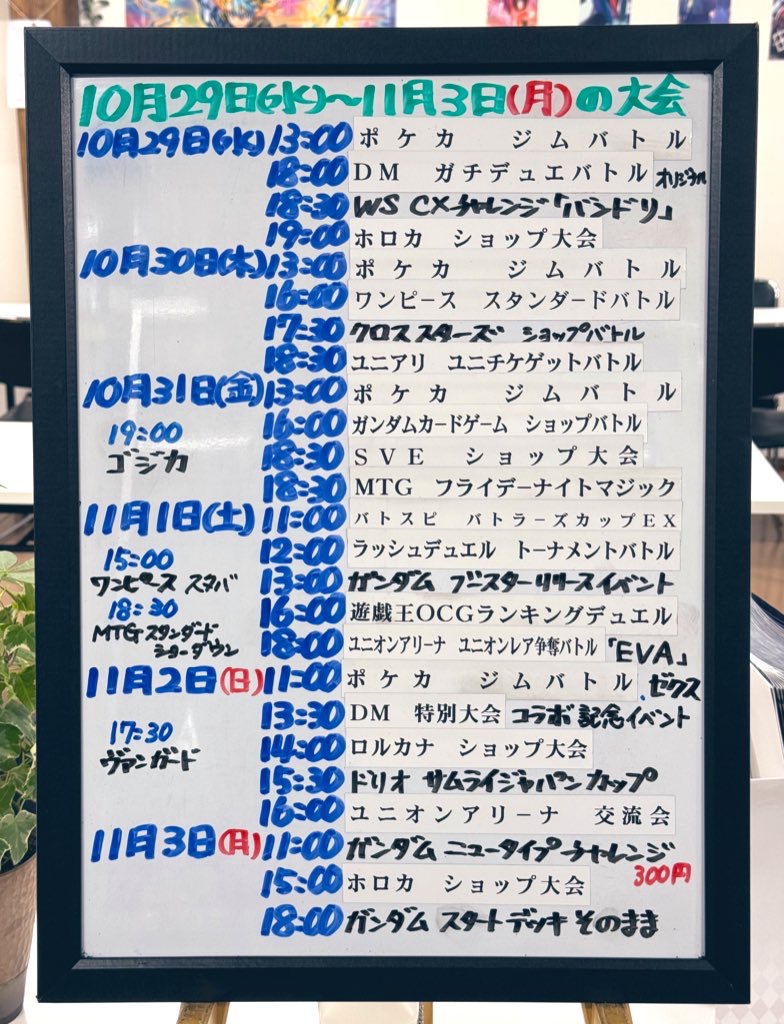 10月29日(水)～11月3日(月)の大会
10月29日(水)13:00 ポケカ ジムバトル
18:00 DM ガチデュエバトル オリジナル
18:30 WS CXチャレンジ「バンドリ」
19:00 ホロカ ショップ大会
10月30日(木)13:00 ポケカ ジムバトル
16:00 ワンピース スタンダードバトル
17:30 クロススターズ ショップバトル
18:30 ユニアリ ユニチケゲットバトル
10月31日(金)13:00 ポケカ ジムバトル
16:00 ガンダムカードゲーム ショップバトル
19:00
ゴジカ
18:30 SVE ショップ大会
18:30 MTG フライデーナイトマジック
11月1日(土)11:00 バトスピ バトラーズカップEX
12:00 ラッシュデュエル トーナメントバトル
15:00
ワンピース スタバ
13:00 ガンダム ブースターリリースイベント
18:30
MTGスタンダード
ショーダウン
16:00 遊戯王OCGランキングデュエル
18:00 ユニオンアリーナ ユニオンレア争奪バトル「EVA」
11月2日(日)11:00 ポケカ ジムバトル
13:30 DM 特別大会 ゼクスコラボ記念イベント
17:30
ヴァンガード
14:00 ロルカナ ショップ大会
15:30 ドリオ サムライジャパンカップ
16:00 ユニオンアリーナ 交流会
11月3日(月)11:00 ガンダム ニュータイプチャレンジ
300円
15:00 ホロカ ショップ大会
18:00 ガンダム スタートデッキ そのまま